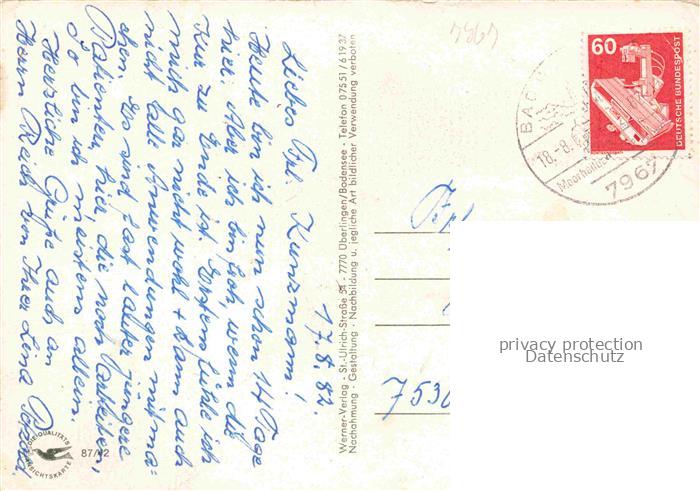 17.8.82.
Liebes Frl. Kunzmann!
Heute bin ich nun schon 14 Tage
hier. Aber ich bin froh, wenn die
Kur zu Ende ist. Erstens fühle ich
mich gar nicht wohl + kann auch
nicht alle Anwendungen mitma=
chen. Es sind fast lauter jüngere
Patienten hier, die noch arbeiten,
so bin ich meistens allein.
Herzliche Grüße auch an
Herrn Reich von Ihrer Lina
Werner-Verlag · St.-Ulrich-Straße 54 · 7770 Überlingen/Bodensee · Telefon 07551/61937
Nachahmung · Gestaltung · Nachbildung u. jegliche Art bildlicher Verwendung verboten
DIE QUALITÄTS
ANSICHTSKARTE
87/
7967
60
DEUTSCHE BUNDESPOST
BAD
18.-8.
7967
753
privacy protection
Datenschutz